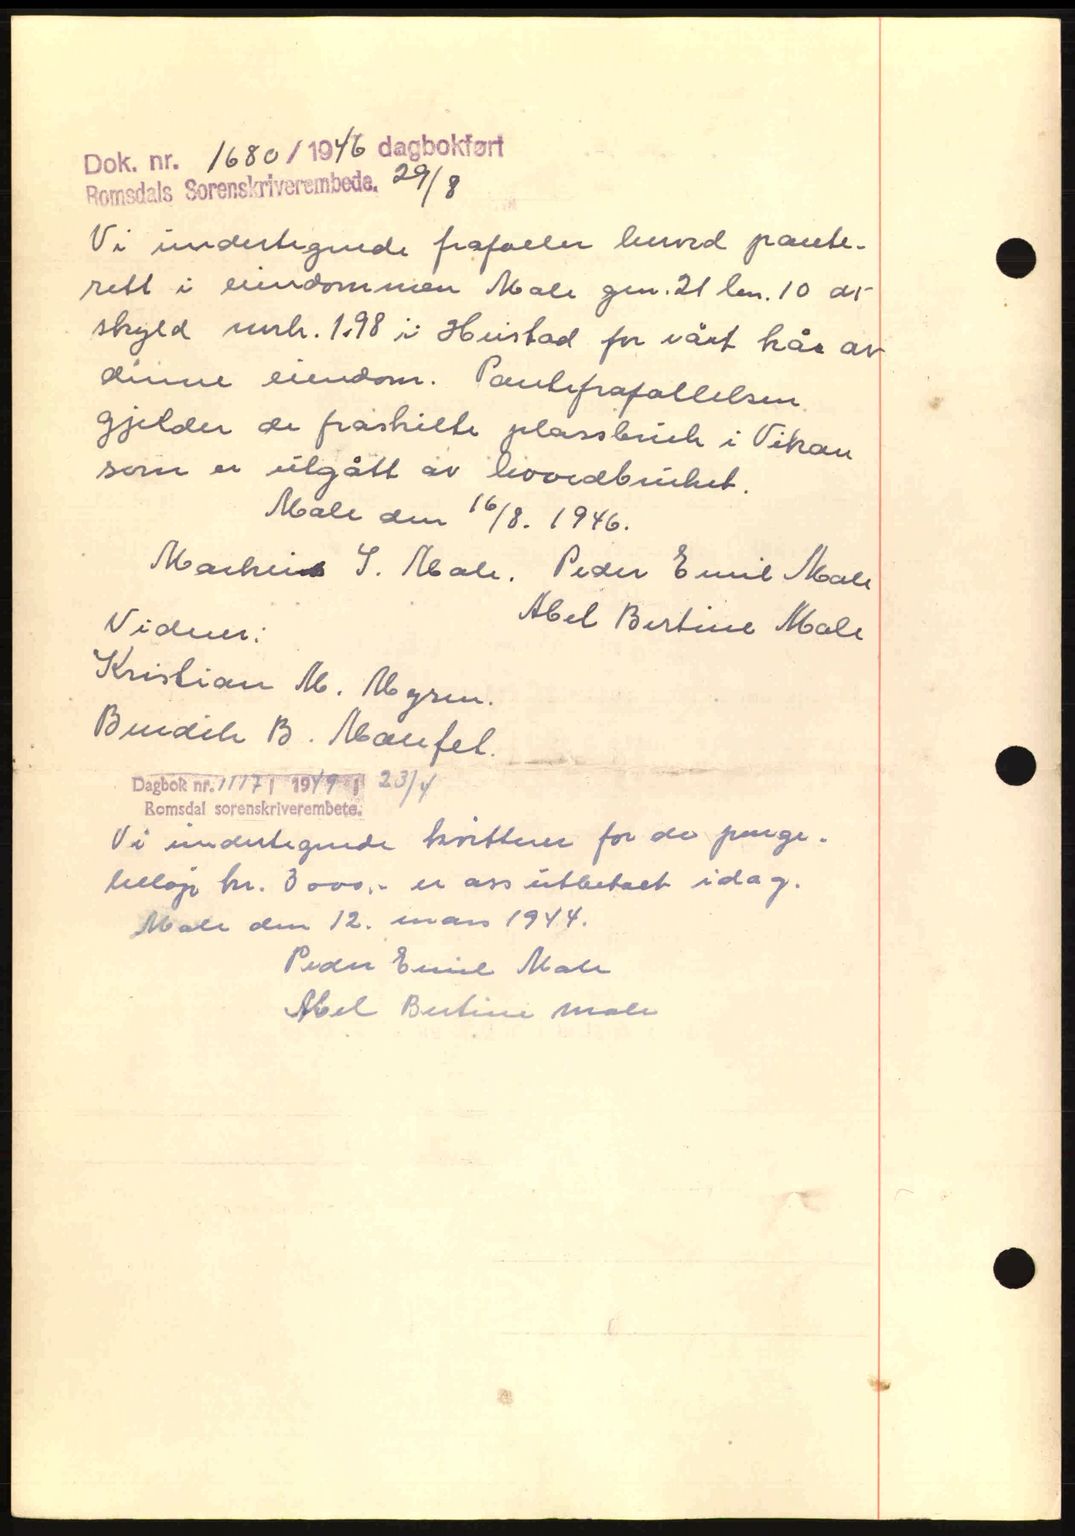 Dok. nr. 1680 / 1946 dagbokført
Romsdals Sorenskriverembede. 29/8
Vi undertegnede frafaller herved pante-
rett i eiendommen Male gnr. 21 bnr. 10 av
skyld mrk. 1.98 i Hustad for vårt kår av
dinne eiendom. Pantefrafallelsen
gjelder de fraskilte plassbruk i Vikan
som er utgått av hovedbruket.
Male den 16/8. 1946.
Markus J. Male. Peder Emil Male
Abel Bertine Male
Vidner:
Kristian M. Myren.
Bendik B.
Dagbok nr. 1117 / 1949 23/4
Romsdal sorenskriverembete.
Vi undertegnede kvitterer for de penge-
beløp kr. 3000,- er oss utbetalt idag.
Male den 12. mars 1944.
Peder Emil Male
Abel Bertine Male